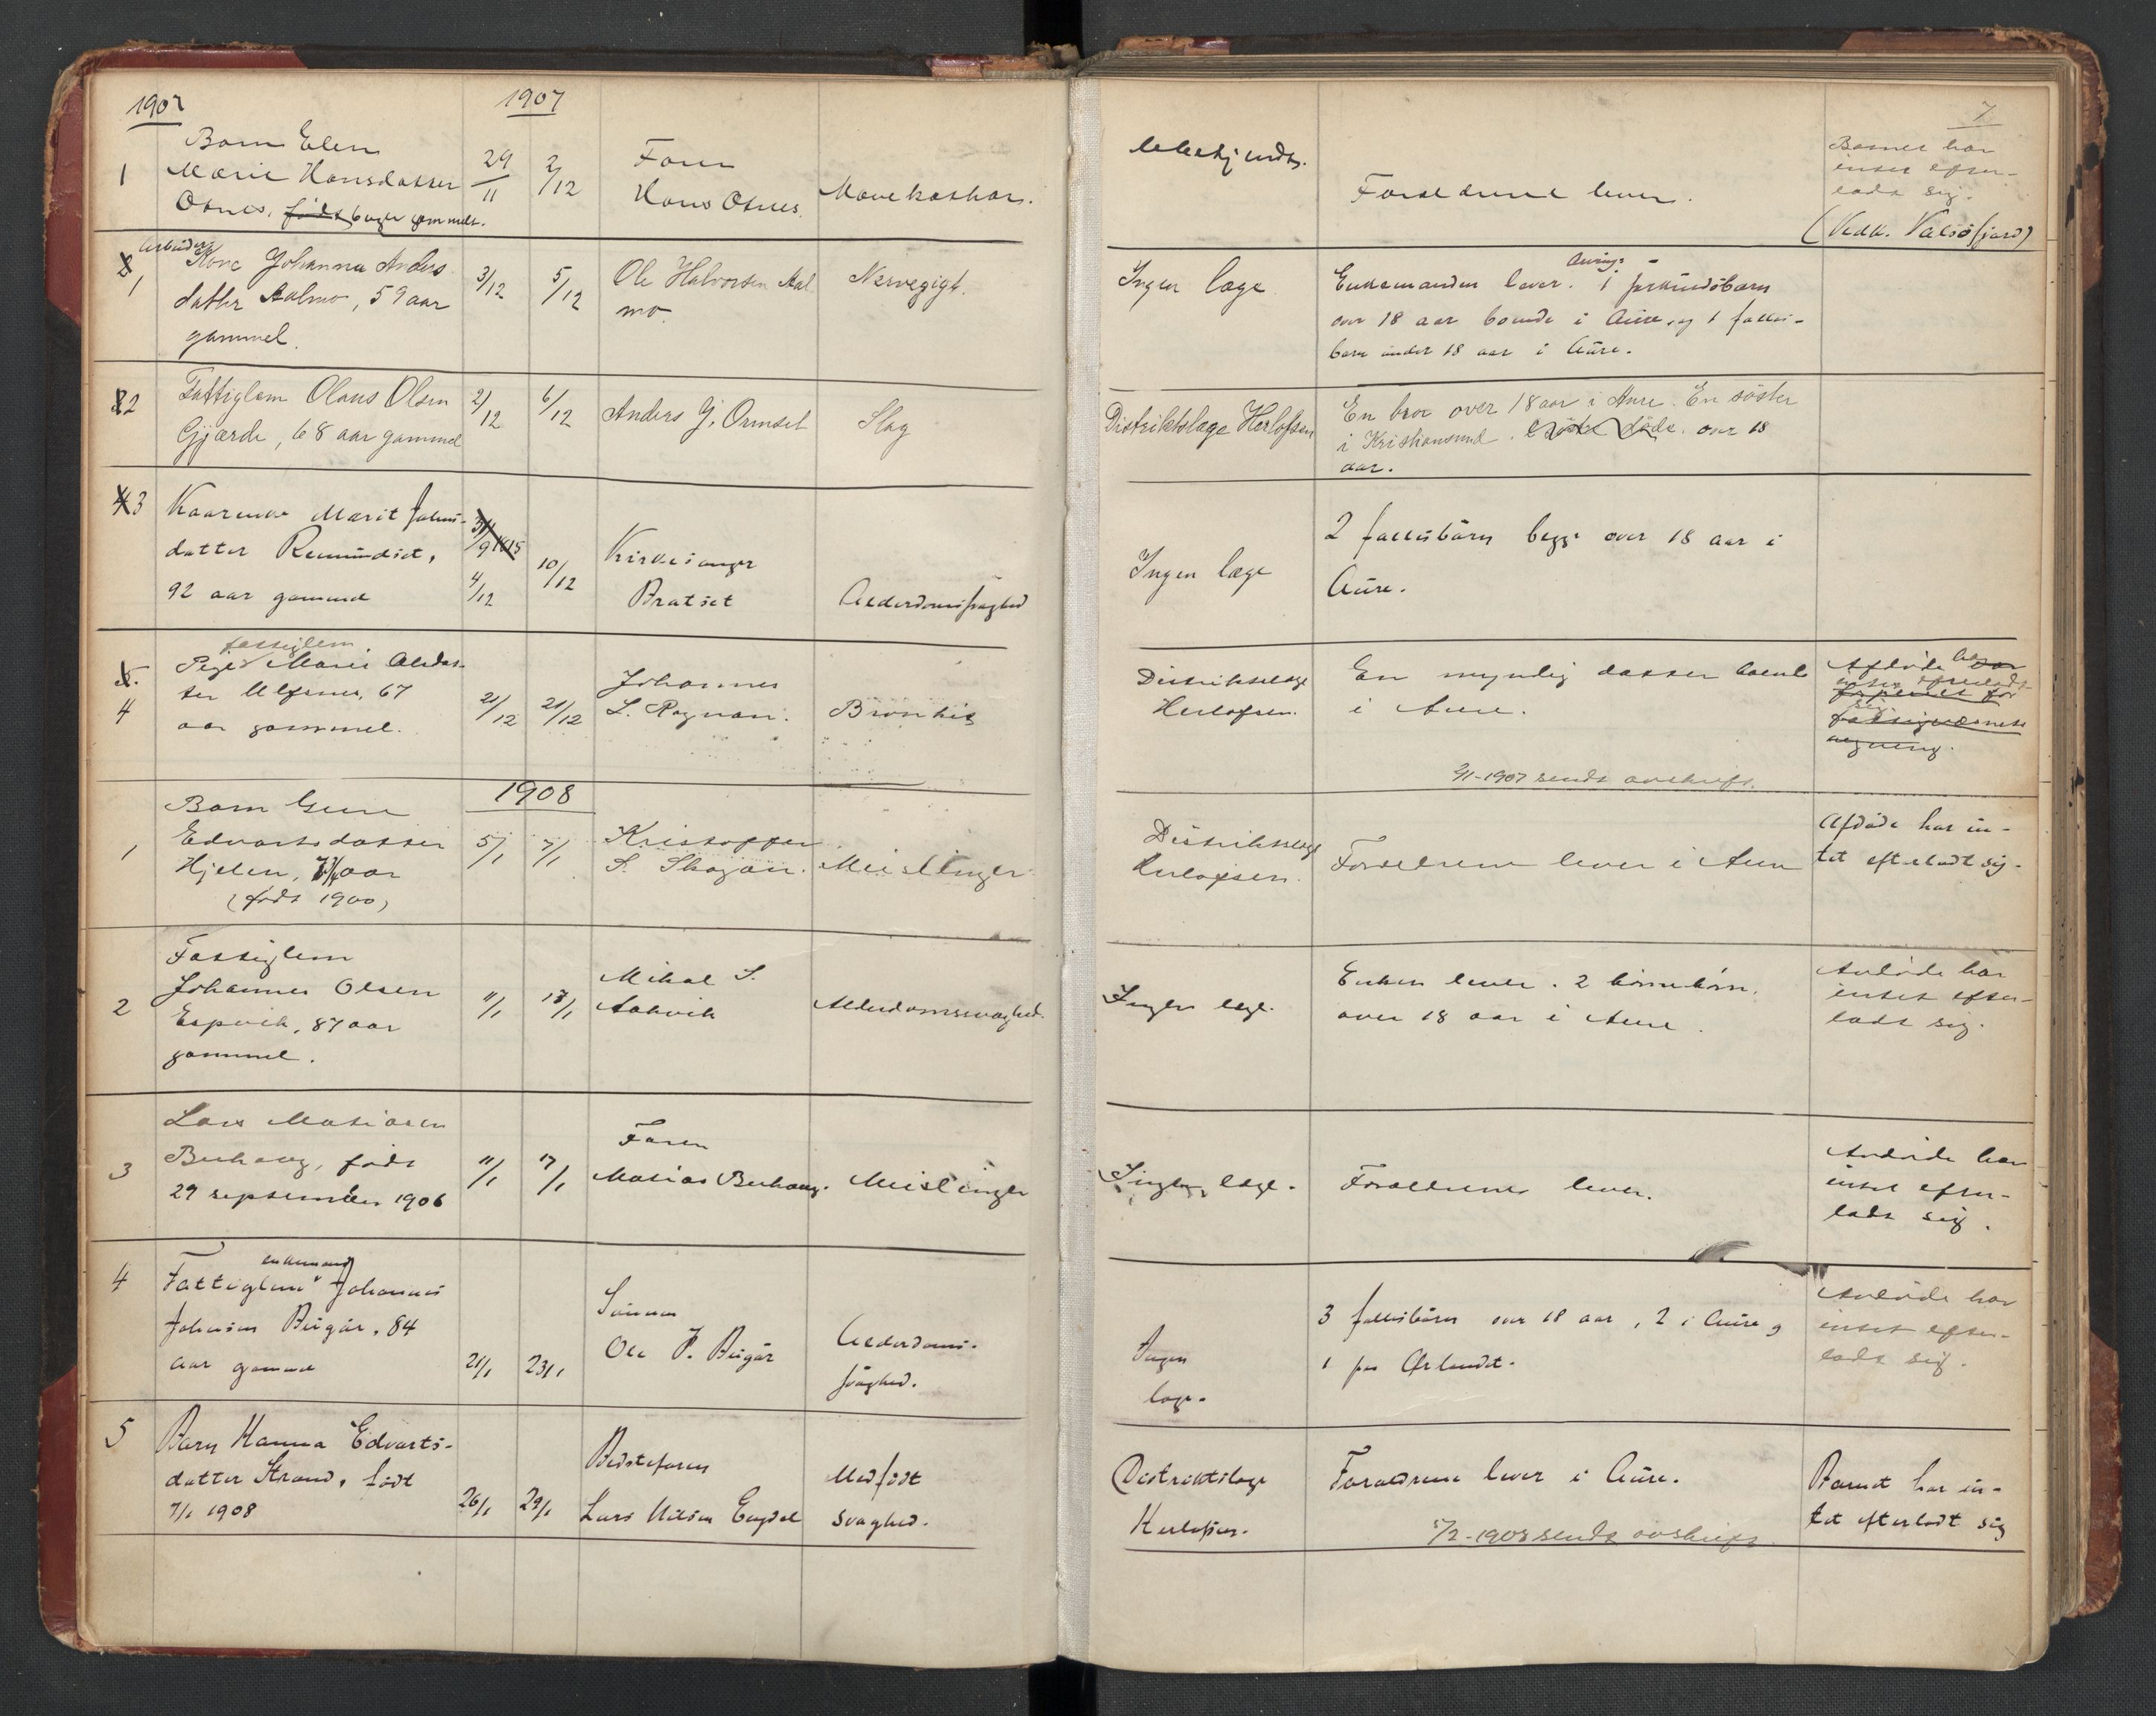 1907
1907
7
1
Barn Elen
Marie Hansdatter
Otnes, født uger gammelt.
29/11
2/12
Faren
Hans Otnes
Mavekatharr.
Ubekjendt.
Forældrene lever.
Barnet har
intet efter-
ladt sig.
(Vedk. Valsøfjord)
2 1
Arbeider
Kone Johanna Anders
datter Aalmo, 59 aar
gammel.
3/12
5/12
Ole Halvorsen Aal
mo.
Nervegigt.
Ingen læge
Enkemanden lever. 1 særkuldsbarn
over 18 aar boende i Aure, og 1 fælles-
barn under 18 aar i Aure.
3 2
Fattiglem Olaus Olsen
Gjærde, 68 aar gammel
2/12
6/12
Anders J. Ormset
Slag
Distriktslæge Herlofsen
En bror over 18 aar i Aure. En søster
i Kristiansund. over 18
aar.
4 3
Kaarenke Marit Johns-
datter Remmindset,
92 aar gammel
4/12
10/12
Kirkesanger
Bratset
Alderdomssvaghed
Ingen læge
2 fællesbørn begge over 18 aar i
Aure.
5.
4
fattiglem
Pige Marie Olsdat-
ter Ulfsnes, 67
aar gammel.
21/12
21/12
Johannes
L. Rognan.
Bronkit
Distriktslæge
Herlofsen.
En myndig datter boende
i Aure.
2/1-1907 sendt avskrift.
Afdøde har
intet efterladt
sig
1908
1
Barn Gure
Edvartsdatter
Hjelen, 7 3/4 aar
(født 1900)
5/1
7/1
Kristoffer
S. Skogan.
Meslinger
Distriktslæge
Herlofsen.
Forældrene lever i Aure
Afdøde har in-
tet efterladt sig.
2
Fattiglem
Johannes Olsen
Espvik, 87 aar
gammel.
11/1
13/1
Mikal S.
Aakvik
Alderdomssvaghed.
Ingen læge.
Enken lever. 2 barnebørn
over 18 aar i Aure.
Avdøde har
intet efter-
ladt sig.
3
Lars Matiasen
Berhaug, født
29 september 1906
11/1
17/1
Faren
Matias Berhaug.
Meslinger
Ingen læge.
Forældrene lever.
Avdøde har
intet efter-
ladt sig.
4
enkemand
Fattiglem Johannes
Johnsen Bugår, 84
aar gammel
21/1
23/1
Sønnen
Ole J. Bugår
Alderdoms-
svaghed.
Ingen
læge.
3 fællesbørn over 18 aar, 2 i Aure og
1 paa Ørlandet.
Avdøde har
intet efter-
ladt sig.
5
Barn Hanna Edvarts-
datter Strand, født
7/1 1908
26/1
29/1
Bedstefaren
Lars Nilsen Engdal
Medfødt
svaghed.
Distriktslæge
Herlofsen.
Forældrene lever i Aure.
5/2-1908 sendt avskrift.
Barnet har in-
tet efterladt sig